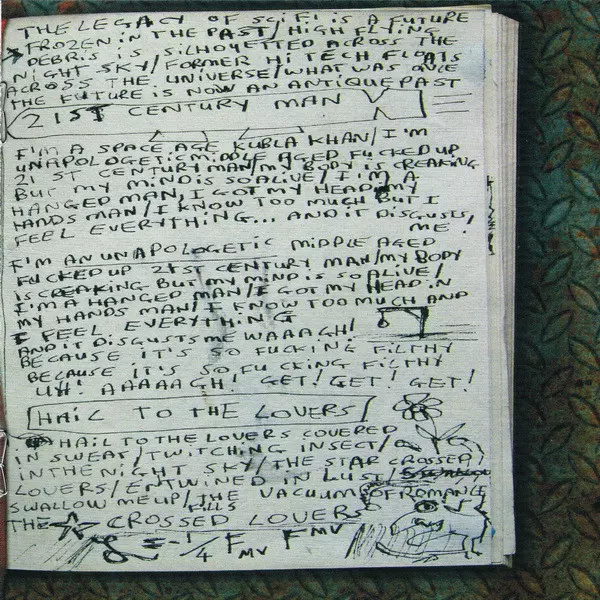 THE LEGACY OF SCIFI IS A FUTURE
FROZEN IN THE PAST/HIGH FLYING
DEBRIS IS SILHOYETTED ACROSS THE
NIGHT SKY/FORMER HI TECH FLOATS
ACROSS THE UNIVERSE/WHAT WAS ONCE
THE FUTURE IS NOW AN ANTIQUE PAST
21ST CENTURY MAN
I'M A SPACE AGE KUBLA KHAN/I'M
UNAPOLOGETIC MIDDLE AGED FUCKED UP
21 ST CENTURY MAN/MY BODY IS CREAKING
BUT MY MIND IS SO ALIVE/I'M A
HANGED MAN, I GOT MY HEAD MY
HANDS MAN/I KNOW TOO MUCH BUT I
FEEL EVERYTHING... AND IT DISGUSTS/
ME!
I'M AN UNAPOLOGETIC MIDDLE AGED
FUCKED UP 21ST CENTURY MAN/MY BODY
IS CREAKING BUT MY MIND IS SO ALIVE/
I'M A HANGED MAN/I GOT MY HEAD IN
MY HANDS MAN/I KNOW TOO MUCH AND
I FEEL EVERYTHING
AND IT DISGUSTS ME WAAAGH!
BECAUSE IT'S SO FUCKING FILTHY
BECAUSE IT'S SO FUCKING FILTHY
UH! AAAAAGH! GET! GET! GET!
HAIL TO THE LOVERS
HAIL TO THE LOVERS COVERED
IN SWEAT/TWITCHING INSECT/
IN THE NIGHT SKY/THE STAR CROSSED
LOVERS/ENTWINED IN LUST
SWALLOW ME UP/THE VACUUM OF ROMANCE
FILLS
THE CROSSED LOVERS
8=-1/4 FMV FMV